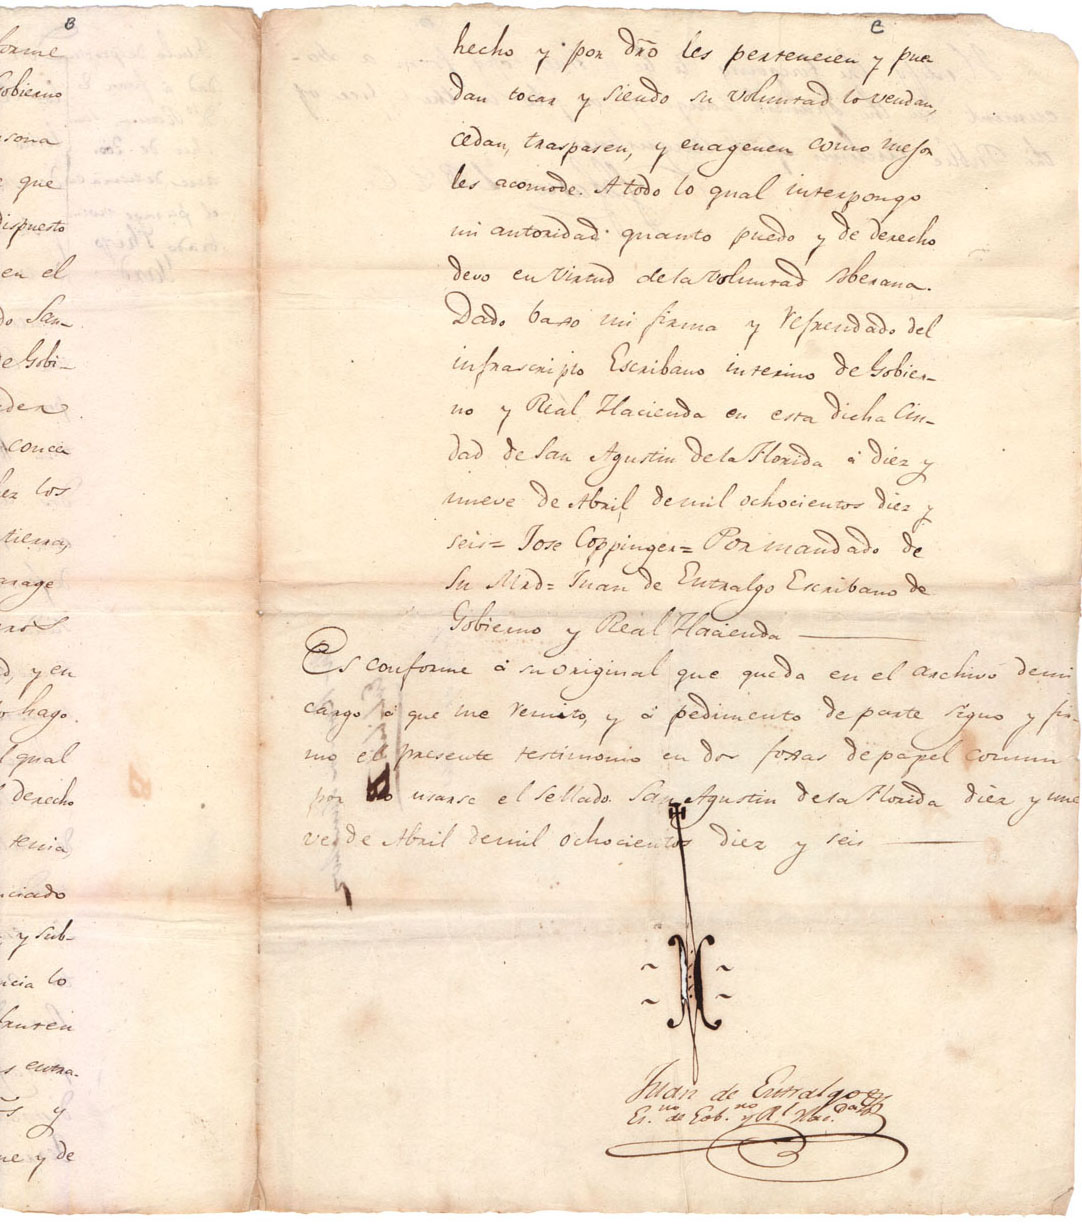 B
forme
Gobierno
sona
que
dispuesto
en el
do San-
de Gobi-
eder
conce
los
tierra,
arage
d, y en
hago.
l qual
derecho
tenia,
nciado
y sub-
ncia lo
fruten
s entra-
y
ne y de
C
hecho y por dro les pertenecen y pue
dan tocar y siendo su voluntad lo vendan,
cedan, traspasen, y enagenen como mejor
les acomode. A todo lo qual interpongo
mi autoridad quanto puedo y de derecho
devo en virtud de la voluntad soberana.
Dado baxo mi firma y refrendado del
infrascripto Escribano interino de Gobier-
no y Real Hacienda en esta dicha Ciu-
dad de San Agustin de la Florida á diez y
nueve de Abril, de mil ochocientos diez y
seis= Jose Coppinger= Por mandado de
Su Mrd= Juan de Entralgo Escribano de
Gobierno y Real Hacienda
Es conforme á su original que queda en el archivo de mi
cargo á que me remito, y á pedimento de parte signo y fir-
mo el presente testimonio en dos foxas de papel comun
por no usarse el sellado. San Agustin de la Florida diez y nue
ve de Abril de mil ochocientos diez y seis
Juan de Entralgo
Es.no de Gob.no y Rl Hac.da